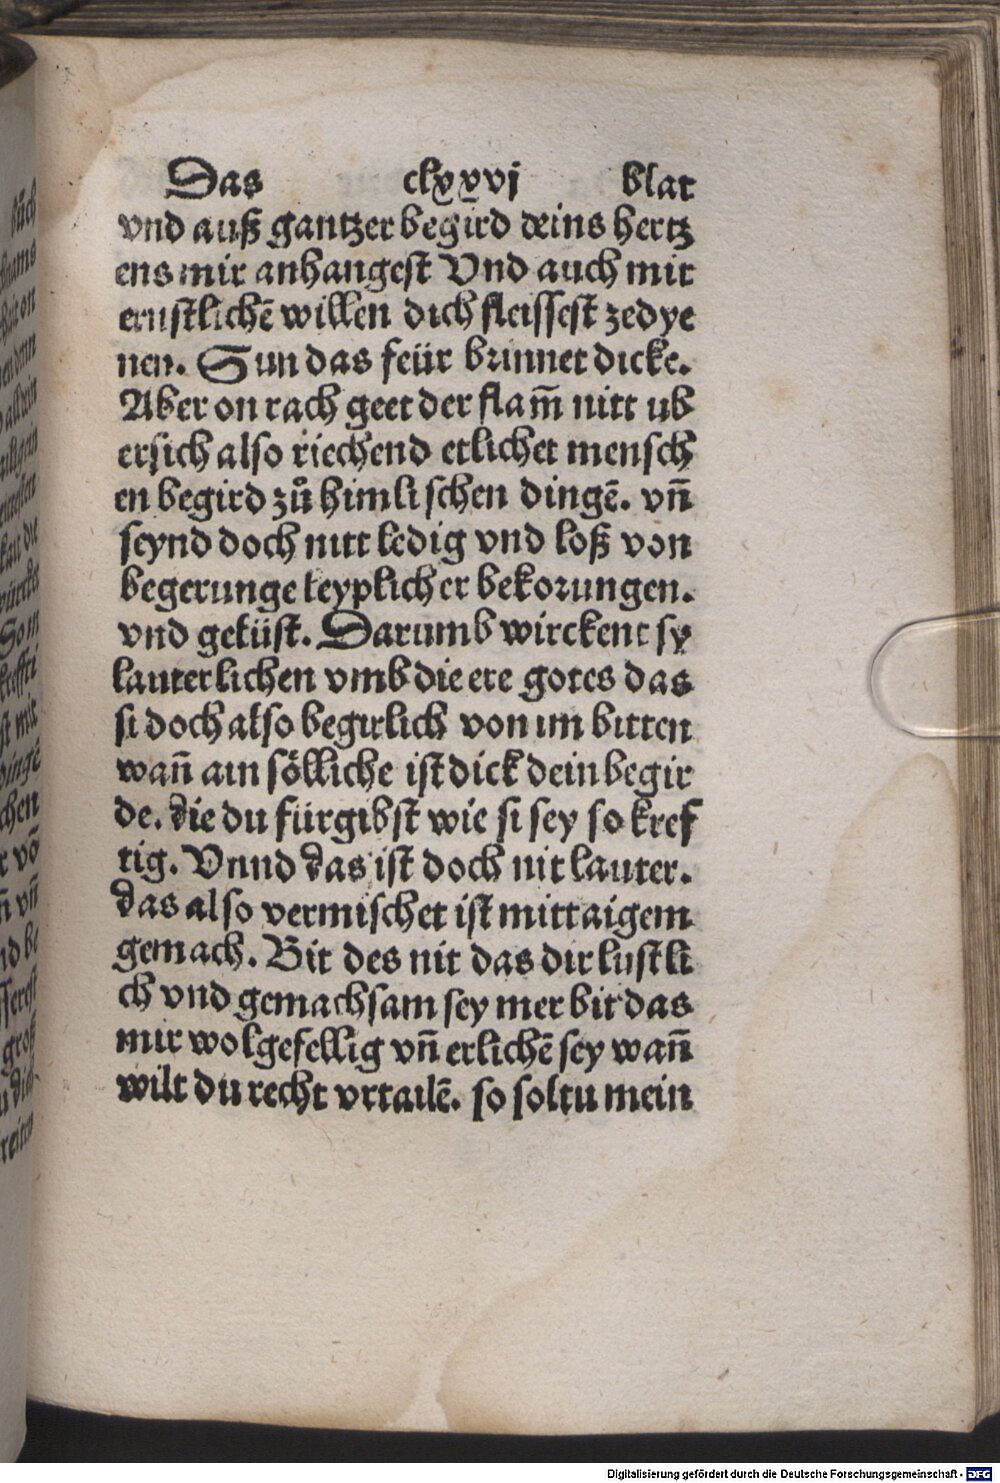 Das clxxvj blat
vnd auß gantzer begird deins hertz
ens mir anhangest Vnd auch mit
ernstlichē willen dich fleissest zedye
nen. Sun das feür brinnet dicke.
Aber on rach geet der flam̄ nitt ub
ersich also riechend etlicher mensch
en begird zů himlischen dingē. vn̄
seynd doch nitt ledig vnd loß von
begerunge leyplicher bekorungen.
vnd gelüst. Darumb wirckent sy
lauterlichen vmb die ere gotes das
si doch also begirlich von im bitten
wan̄ ain sölliche ist dick dein begir
de. die du fürgibst wie si sey so kref
tig. Vnnd das ist doch nit lauter.
das also vermischet ist mitt aigem
gemach. Bit des nit das dir lustli
ch vnd gemachsam sey mer bit das
mir wolgefellig vn̄ erlichē sey wan̄
wilt du recht vrtailē. so soltu mein
Digitalisierung gefördert durch die Deutsche Forschungsgemeinschaft - DFG